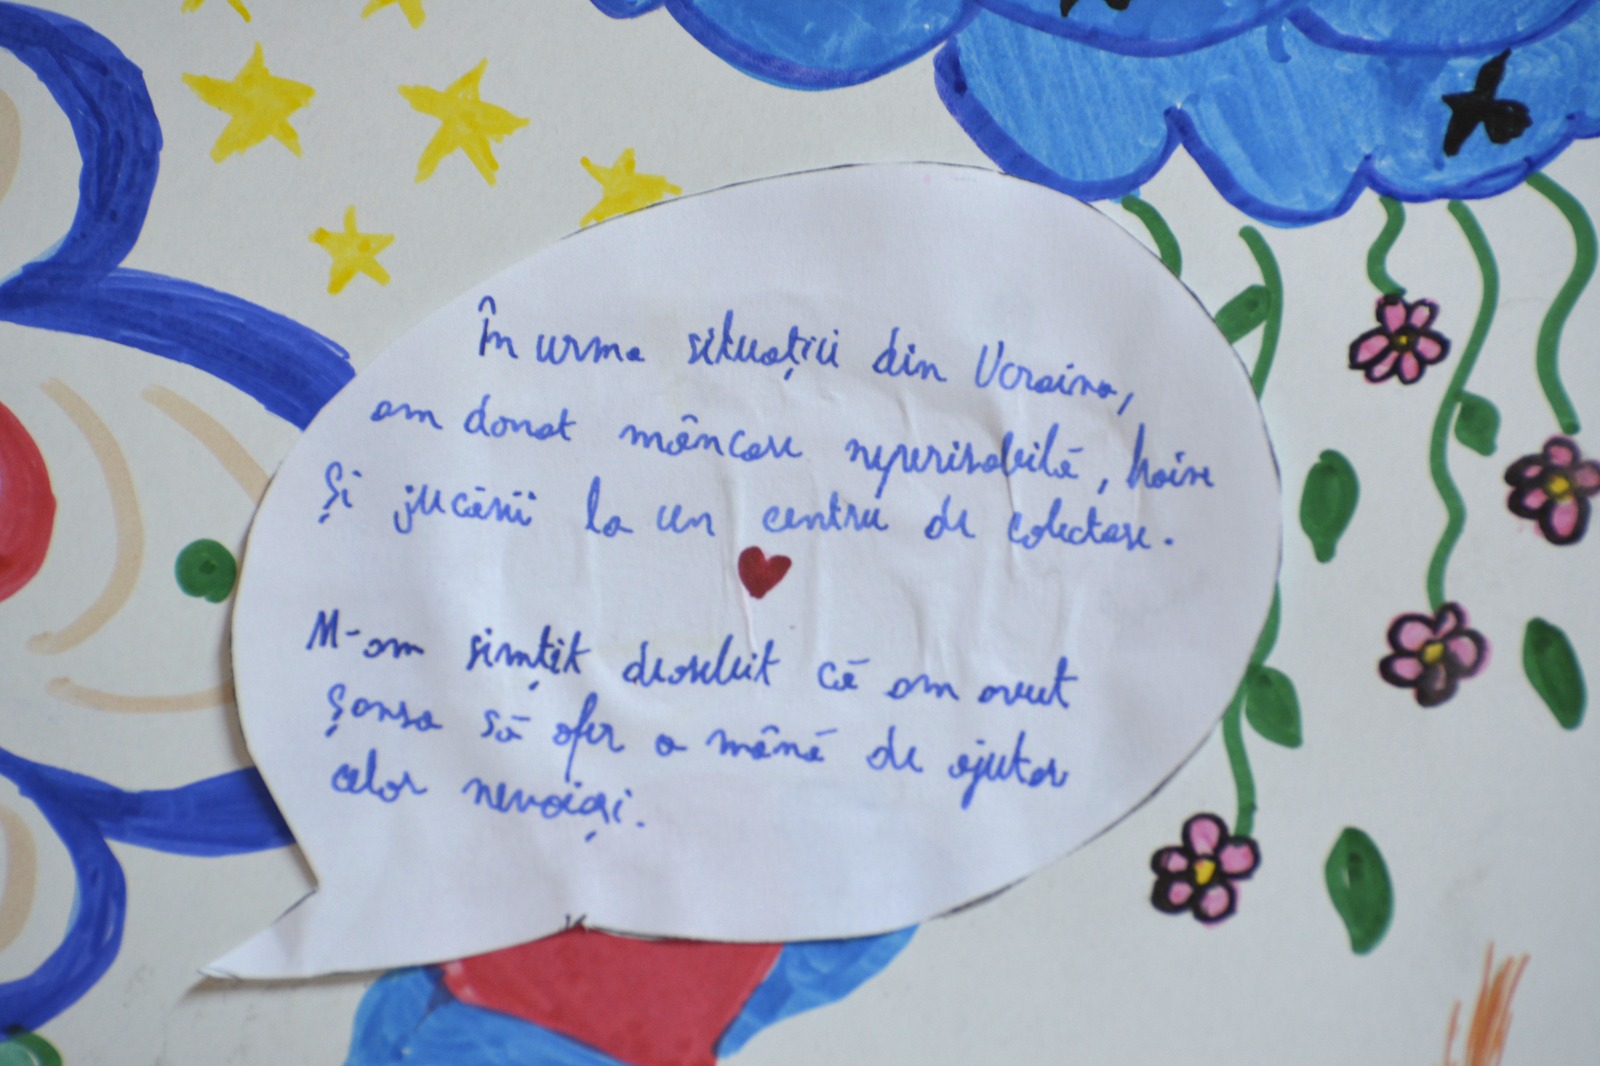 În urma situației din Ucraina,
am donat mâncare neperisabilă, haine
și jucării la un centru de colectare.
M-am simțit deosebit că am avut
șansa să ofer o mână de ajutor
celor nevoiași.